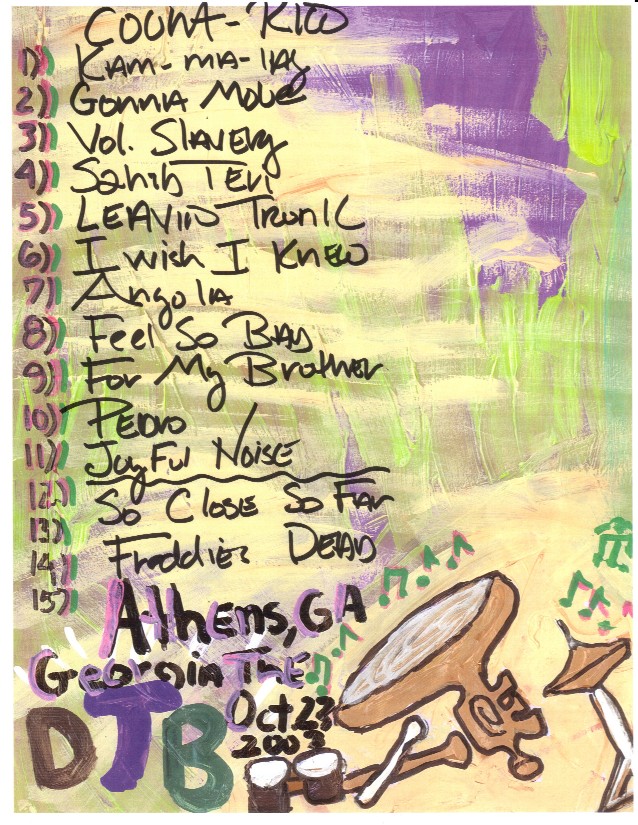 1) Kam-ma-lay
2) Gonna Move
3) Vol. Slavery
4) Sahib Teri
5) Leavin Trunk
6) I wish I Knew
7) Angola
8) Feel So Bad
9) For My Brother
10) Pedro
11) Joyful Noise
12) So Close So Far
13)
14) Freddies Dead
15)
Athens, GA
Georgia The
Oct 23
2003
DTB